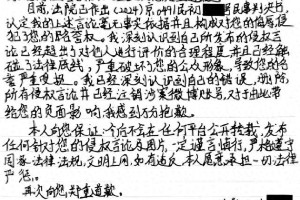 目前,法院已作出(2024)京0491民初 号民事判决书,
认定我的上述言论毫无事实依据并且构成对您的侮辱侵
犯了您的名誉权。我深刻认识到自己所发布的侵权言
论已经超出了对他人进行评价的合理程度,并且已经触
碰了法律底线,严重破坏了您的公众形象,导致您的名
誉严重受损。我已经深刻认识到自己的错误,删除
所有侵权言论并已经注销涉案微博账号,对于由此带
给您的负面影响,我感到万分抱歉。
本人向您保证,今后不会在任何平台公开转载、发布
任何针对您的侵权言论及图片,一定谨言慎行,严格遵守
国家法律法规,文明上网,如有违反,本人愿意承担一切法律
严惩。
再次向您郑重道歉。